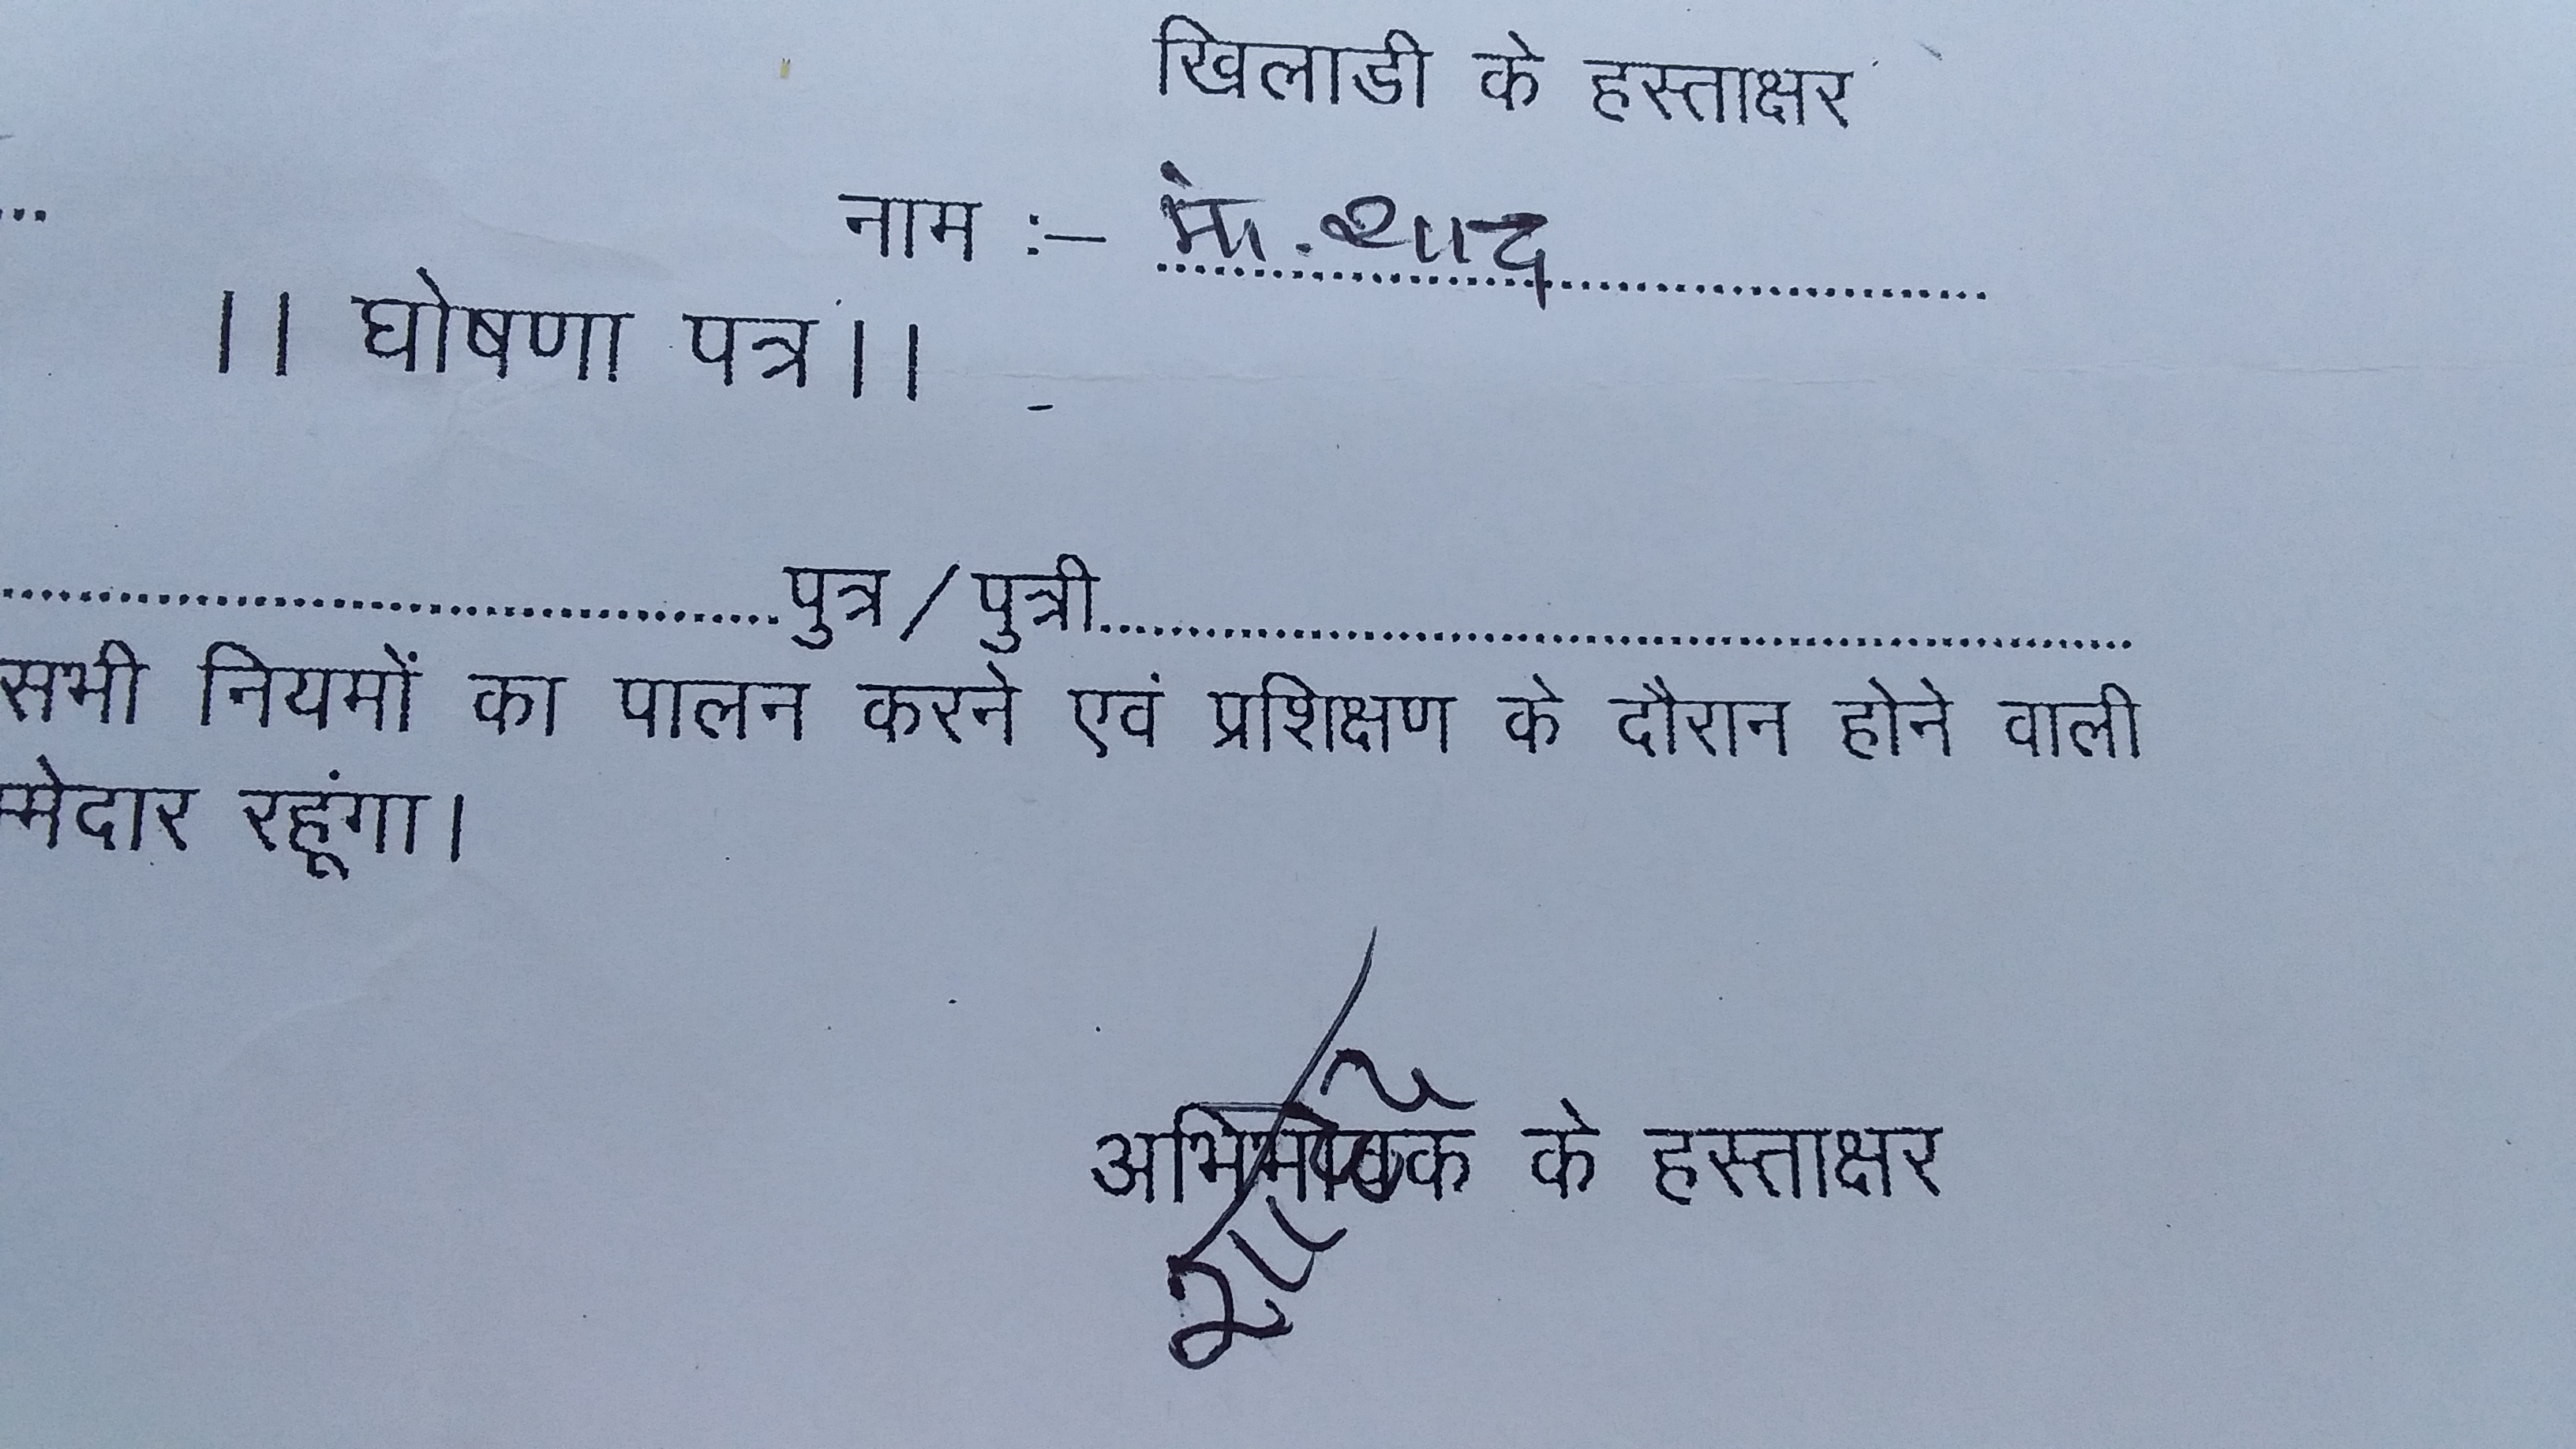 खिलाडी के हस्ताक्षर
नाम :– मो. शाद
।। घोषणा पत्र ।।
पुत्र / पुत्री
सभी नियमों का पालन करने एवं प्रशिक्षण के दौरान होने वाली
म्मेदार रहूंगा।
अभिभावक के हस्ताक्षर